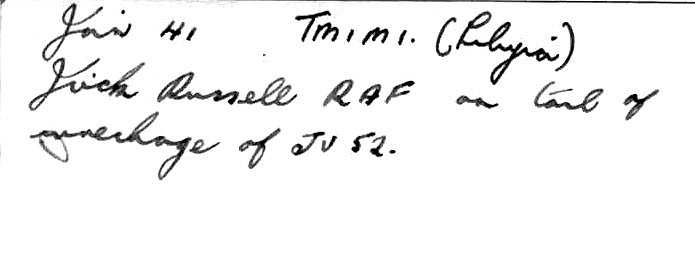 Jan 41 TMIMI. (Libya)
Jock Russell RAF on tail of
wreckage of JU 52.